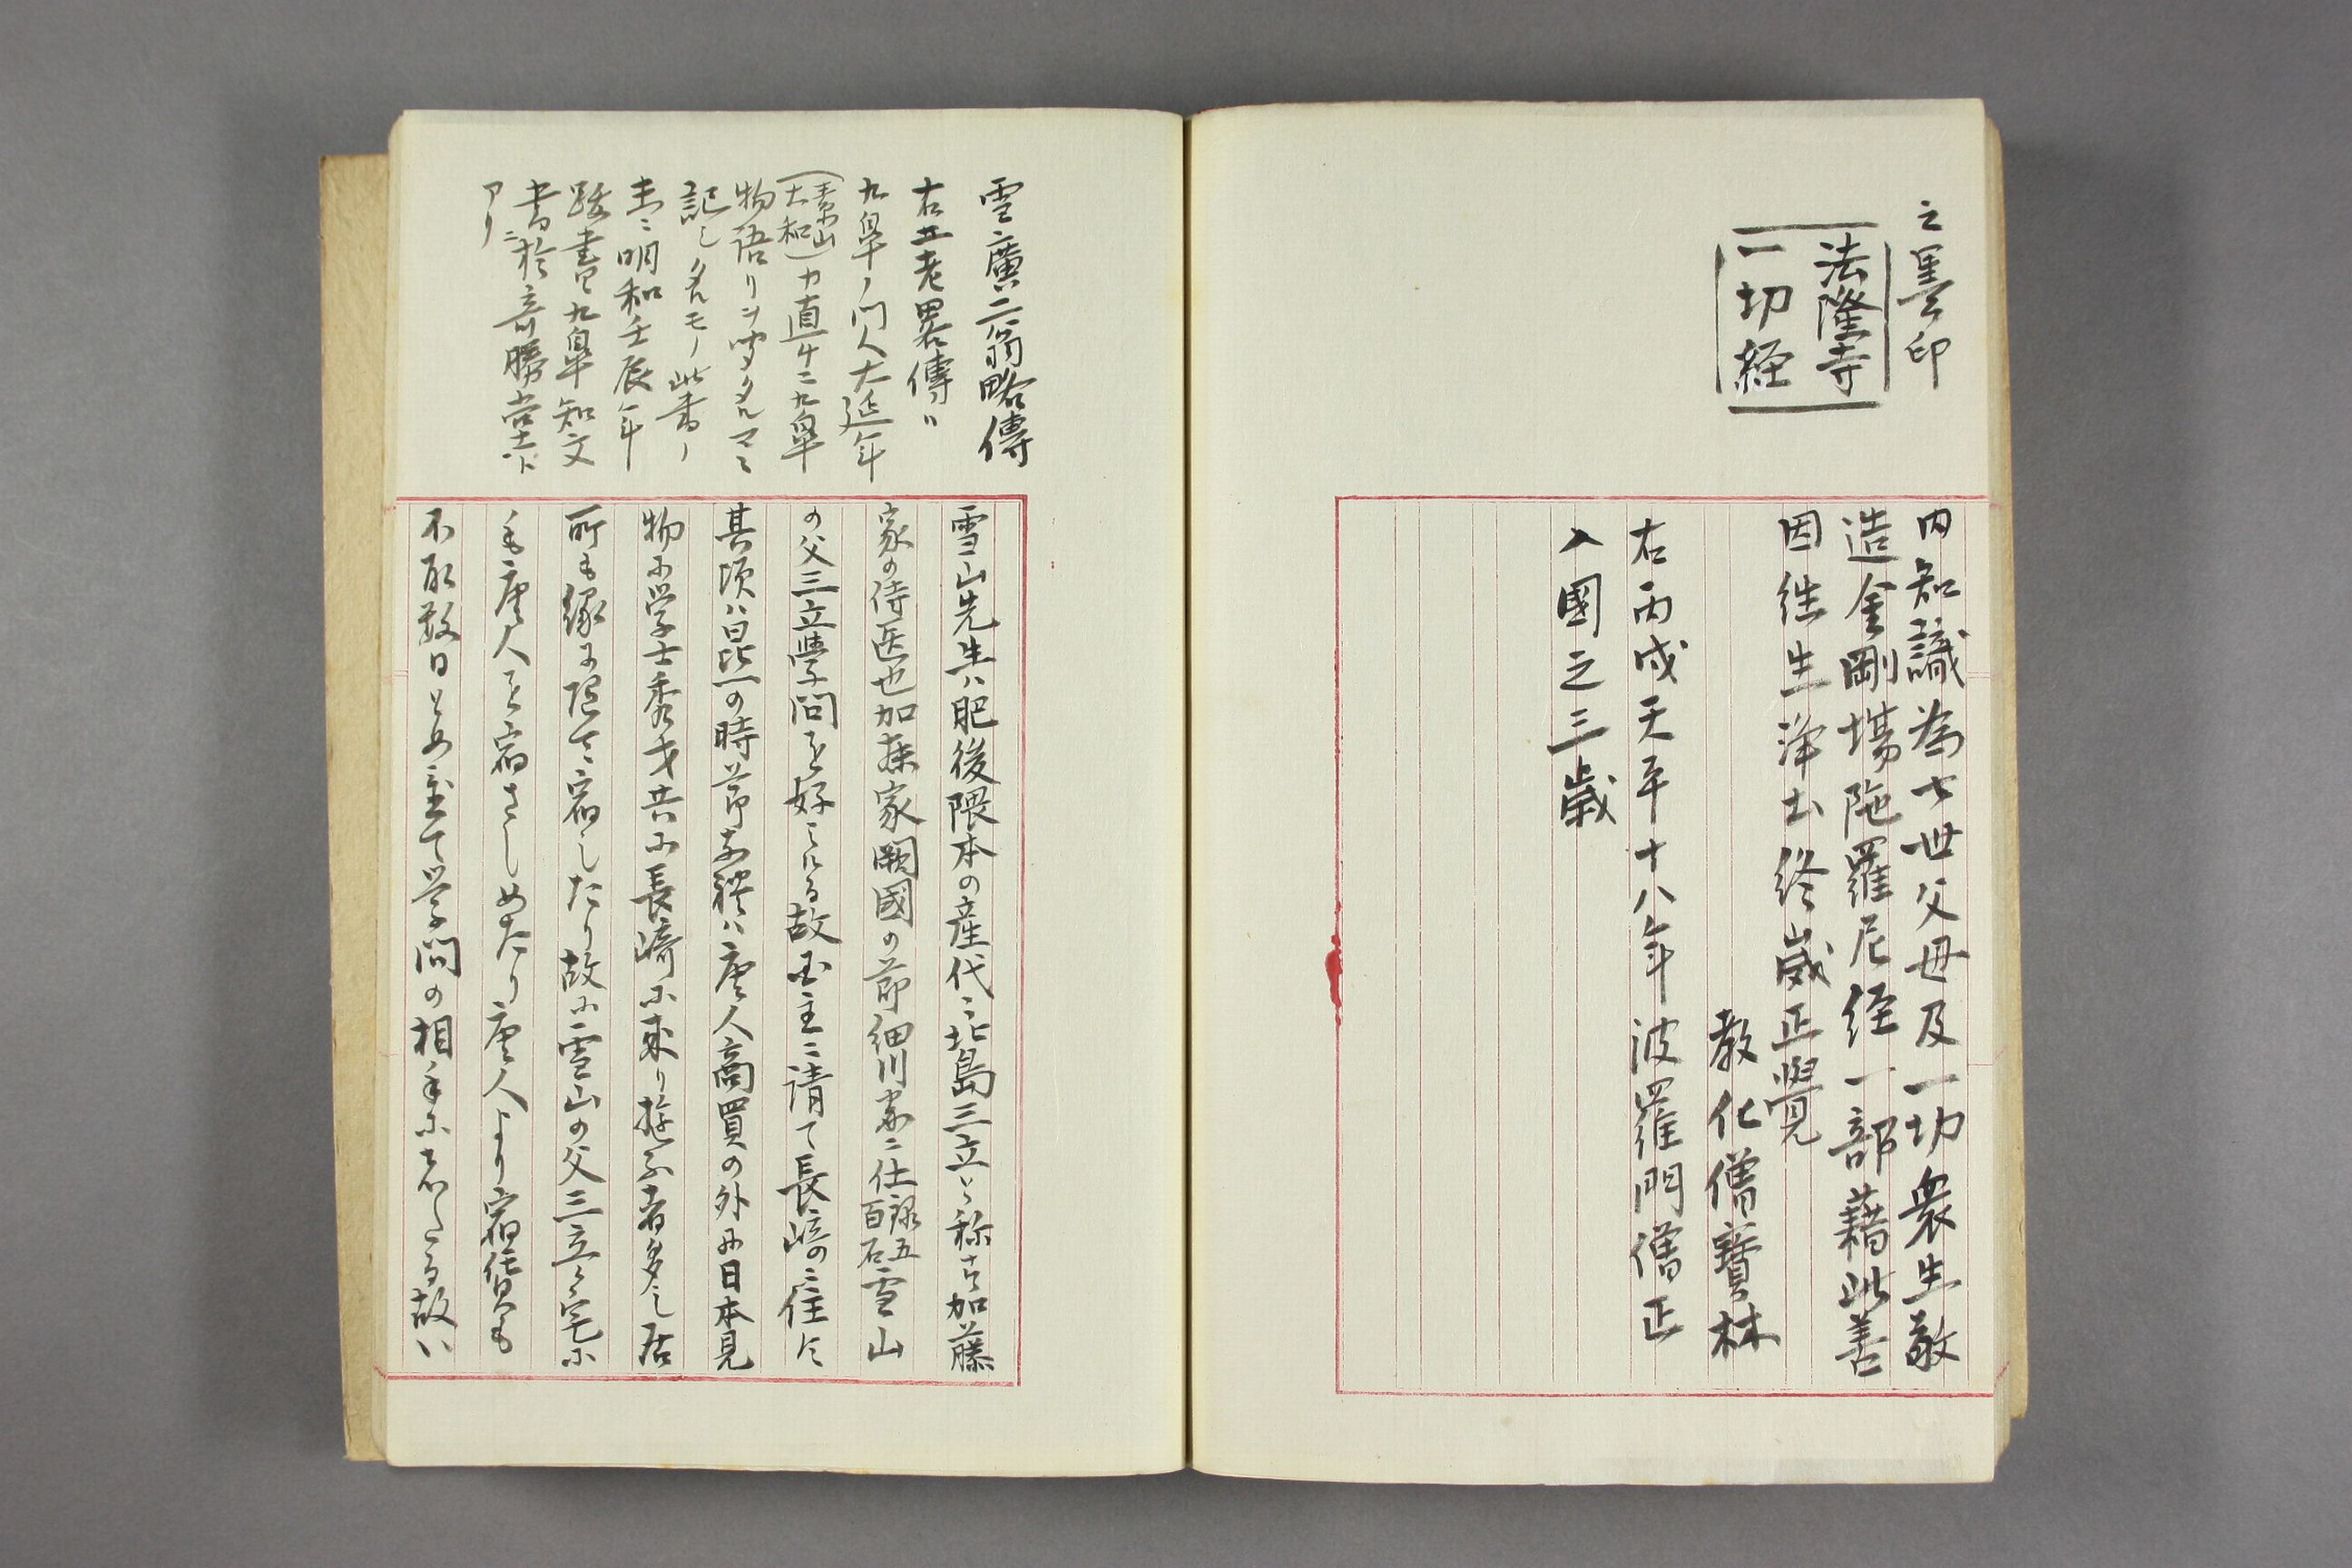 之墨印
法隆寺
一切経
内知識為七世父母及一切衆生敬
造金剛場陁羅尼経一部藉此善
因往生浄土終成正覺
教化僧寶林
右丙戌天平十八年波羅門僧正
入國之三歳
雪廣二翁略傳
右二老畧傳ハ
九皐ノ門人大延年
大和)カ直ケニ九皐
物語リヲ聞タルマヽ
記シタルモノ此書ノ
末ニ明和壬辰年
跋書アリ九皐知文
書於斎勝堂下ニ
アリ
雪山先生ハ肥後隈本の産代々北島三立と称す加藤
家の侍医也加藤家闕國の節細川家ニ仕禄五百石雪山
の父三立學問を好みける故国主ニ請て長崎の住に
其頃ハ昆の時節 ハ唐人商買の外に日本見
物に学士秀才共に長崎に来り遊ふ者多し居
所も縁に随て宿したり故に雪山の父三立宅に
も唐人を宿さしめたり唐人より宿賃も
不取数日とめ置て学問の相手にあしたる故ハ